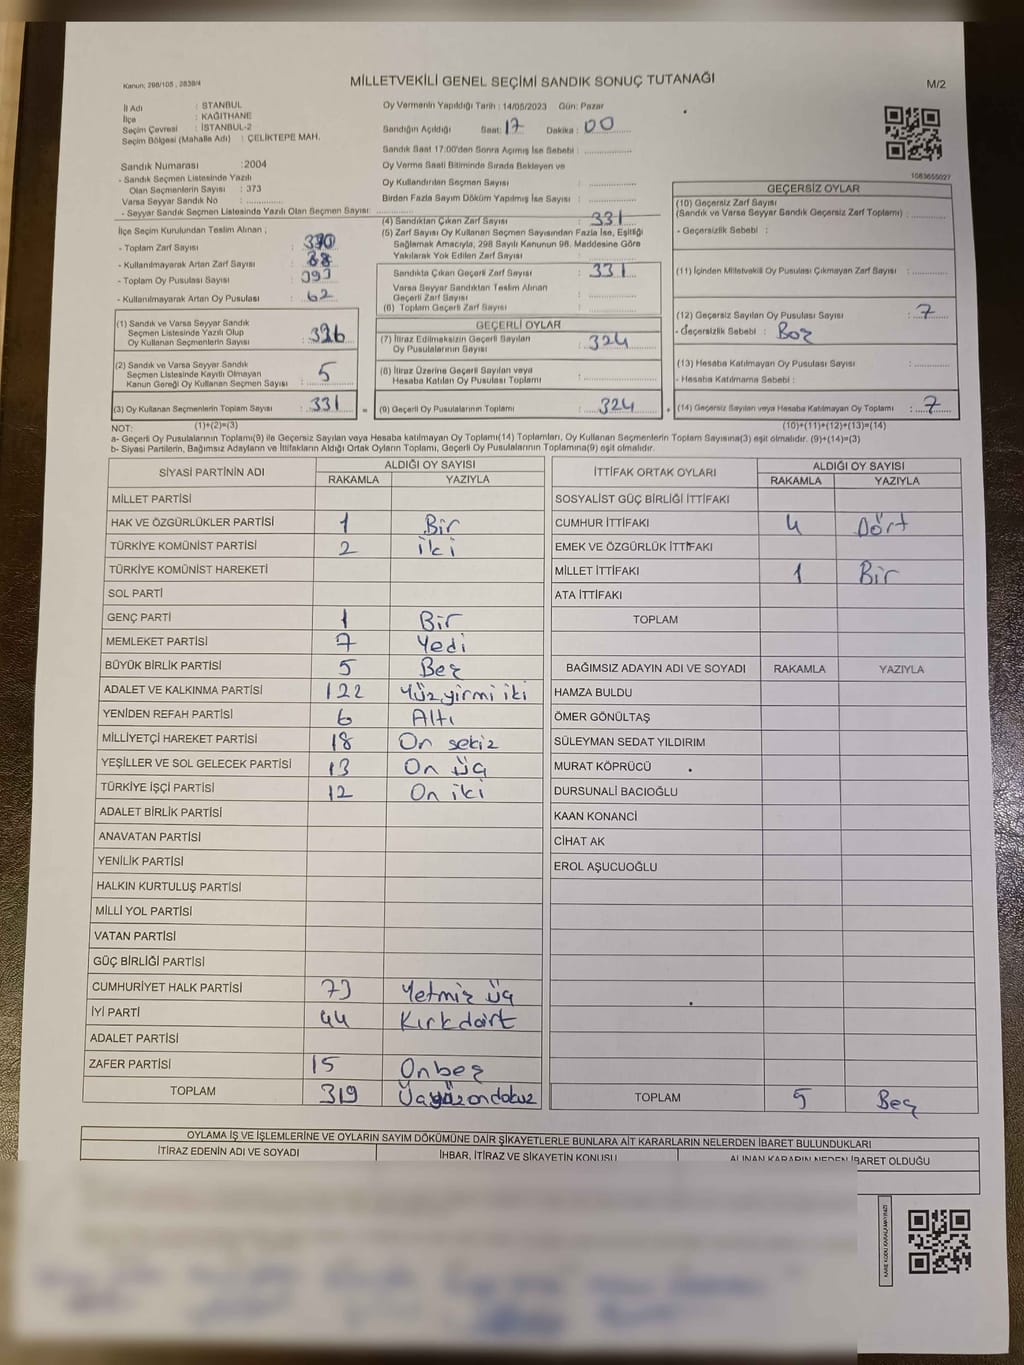 Kanun; 298/105 , 2839/4
MİLLETVEKİLİ GENEL SEÇİMİ SANDIK SONUÇ TUTANAĞI
M/2
İl Adı : STANBUL
İlçe : KAĞITHANE
Seçim Çevresi : İSTANBUL-2
Seçim Bölgesi (Mahalle Adı) : ÇELİKTEPE MAH.
Oy Vermenin Yapıldığı Tarih : 14/05/2023 Gün: Pazar
Sandığın Açıldığı Saat: 17 Dakika : 00
Sandık Saat 17:00'den Sonra Açılmış İse Sebebi :
Oy Verme Saati Bitiminde Sırada Bekleyen ve
Oy Kullandırılan Seçmen Sayısı :
Birden Fazla Sayım Döküm Yapılmış İse Sayısı :
1083655027
Sandık Numarası : 2004
- Sandık Seçmen Listesinde Yazılı
Olan Seçmenlerin Sayısı : 373
Varsa Seyyar Sandık No :
- Seyyar Sandık Seçmen Listesinde Yazılı Olan Seçmen Sayısı:
İlçe Seçim Kurulundan Teslim Alınan ;
- Toplam Zarf Sayısı :
- Kullanılmayarak Artan Zarf Sayısı :
- Toplam Oy Pusulası Sayısı : 393
- Kullanılmayarak Artan Oy Pusulası : 62
(1) Sandık ve Varsa Seyyar Sandık
Seçmen Listesinde Yazılı Olup
Oy Kullanan Seçmenlerin Sayısı : 326
(2) Sandık ve Varsa Seyyar Sandık
Seçmen Listesinde Kayıtlı Olmayan
Kanun Gereği Oy Kullanan Seçmen Sayısı : 5
(3) Oy Kullanan Seçmenlerin Toplam Sayısı : 331
(1)+(2)=(3)
(4) Sandıktan Çıkan Zarf Sayısı : 331
(5) Zarf Sayısı Oy Kullanan Seçmen Sayısından Fazla İse, Eşitliği
Sağlamak Amacıyla, 298 Sayılı Kanunun 98. Maddesine Göre
Yakılarak Yok Edilen Zarf Sayısı :
Sandıkta Çıkan Geçerli Zarf Sayısı : 331
Varsa Seyyar Sandıktan Teslim Alınan
Geçerli Zarf Sayısı :
(6) Toplam Geçerli Zarf Sayısı :
GEÇERLİ OYLAR
(7) İtiraz Edilmeksizin Geçerli Sayılan
Oy Pusulalarının Sayısı : 324
(8) İtiraz Üzerine Geçerli Sayılan veya
Hesaba Katılan Oy Pusulası Toplamı :
= (9) Geçerli Oy Pusulalarının Toplamı : 324
GEÇERSİZ OYLAR
(10) Geçersiz Zarf Sayısı
(Sandık ve Varsa Seyyar Sandık Geçersiz Zarf Toplamı) :
- Geçersizlik Sebebi :
(11) İçinden Milletvekili Oy Pusulası Çıkmayan Zarf Sayısı :
(12) Geçersiz Sayılan Oy Pusulası Sayısı : 7
- Geçersizlik Sebebi : Boş
(13) Hesaba Katılmayan Oy Pusulası Sayısı :
- Hesaba Katılmama Sebebi :
+ (14) Geçersiz Sayılan veya Hesaba Katılmayan Oy Toplamı : 7
(10)+(11)+(12)+(13)=(14)
NOT:
a- Geçerli Oy Pusulalarının Toplamı(9) ile Geçersiz Sayılan veya Hesaba katılmayan Oy Toplamı(14) Toplamları, Oy Kullanan Seçmenlerin Toplam Sayısına(3) eşit olmalıdır. (9)+(14)=(3)
b- Siyasi Partilerin, Bağımsız Adayların ve İttifakların Aldığı Ortak Oyların Toplamı, Geçerli Oy Pusulalarının Toplamına(9) eşit olmalıdır.
SİYASİ PARTİNİN ADI ALDIĞI OY SAYISI
RAKAMLA YAZIYLA
MİLLET PARTİSİ
HAK VE ÖZGÜRLÜKLER PARTİSİ 1 Bir
TÜRKİYE KOMÜNİST PARTİSİ 2 iki
TÜRKİYE KOMÜNİST HAREKETİ
SOL PARTİ
GENÇ PARTİ 1 Bir
MEMLEKET PARTİSİ 7 Yedi
BÜYÜK BİRLİK PARTİSİ 5 Beş
ADALET VE KALKINMA PARTİSİ 122 Yüzyirmi iki
YENİDEN REFAH PARTİSİ 6 Altı
MİLLİYETÇİ HAREKET PARTİSİ 18 On sekiz
YEŞİLLER VE SOL GELECEK PARTİSİ 13 On üç
TÜRKİYE İŞÇİ PARTİSİ 12 On iki
ADALET BİRLİK PARTİSİ
ANAVATAN PARTİSİ
YENİLİK PARTİSİ
HALKIN KURTULUŞ PARTİSİ
MİLLİ YOL PARTİSİ
VATAN PARTİSİ
GÜÇ BİRLİĞİ PARTİSİ
CUMHURİYET HALK PARTİSİ 73 Yetmiş üç
İYİ PARTİ 44 Kırkdört
ADALET PARTİSİ
ZAFER PARTİSİ 15 Onbeş
TOPLAM 319 Üçyüzondokuz
İTTİFAK ORTAK OYLARI ALDIĞI OY SAYISI
RAKAMLA YAZIYLA
SOSYALİST GÜÇ BİRLİĞİ İTTİFAKI
CUMHUR İTTİFAKI 4 Dört
EMEK VE ÖZGÜRLÜK İTTİFAKI
MİLLET İTTİFAKI 1 Bir
ATA İTTİFAKI
TOPLAM
BAĞIMSIZ ADAYIN ADI VE SOYADI RAKAMLA YAZIYLA
HAMZA BULDU
ÖMER GÖNÜLTAŞ
SÜLEYMAN SEDAT YILDIRIM
MURAT KÖPRÜCÜ
DURSUNALİ BACIOĞLU
KAAN KONANCİ
CİHAT AK
EROL AŞUCUOĞLU
TOPLAM 5 Beş
OYLAMA İŞ VE İŞLEMLERİNE VE OYLARIN SAYIM DÖKÜMÜNE DAİR ŞİKAYETLERLE BUNLARA AİT KARARLARIN NELERDEN İBARET BULUNDUKLARI
İTİRAZ EDENİN ADI VE SOYADI
İHBAR, İTİRAZ VE ŞİKAYETİN KONUSU
ALINAN KARARIN NEDEN İBARET OLDUĞU